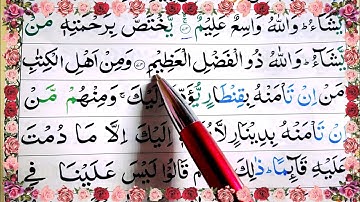 يَّشَآءُ ؕ وَاللّٰهُ وَاسِعٌ عَلِيْمٌ ۚۙ يَّخْتَصُّ بِرَحْمَتِهٖ مَنْ
يَّشَآءُ ؕ وَاللّٰهُ ذُو الْفَضْلِ الْعَظِيْمِ ۝ وَمِنْ اَهْلِ الْكِتٰبِ
مَنْ اِنْ تَاْمَنْهُ بِقِنْطَارٍ يُّؤَدِّهٖۤ اِلَيْكَ ۚ وَمِنْهُمْ مَّنْ
اِنْ تَاْمَنْهُ بِدِيْنَارٍ لَّا اِلَيْكَ اِلَّا مَا دُمْتَ
عَلَيْهِ قَآئِمًا ؕ ذٰلِكَ قَالُوْا لَيْسَ عَلَيْنَا فِي